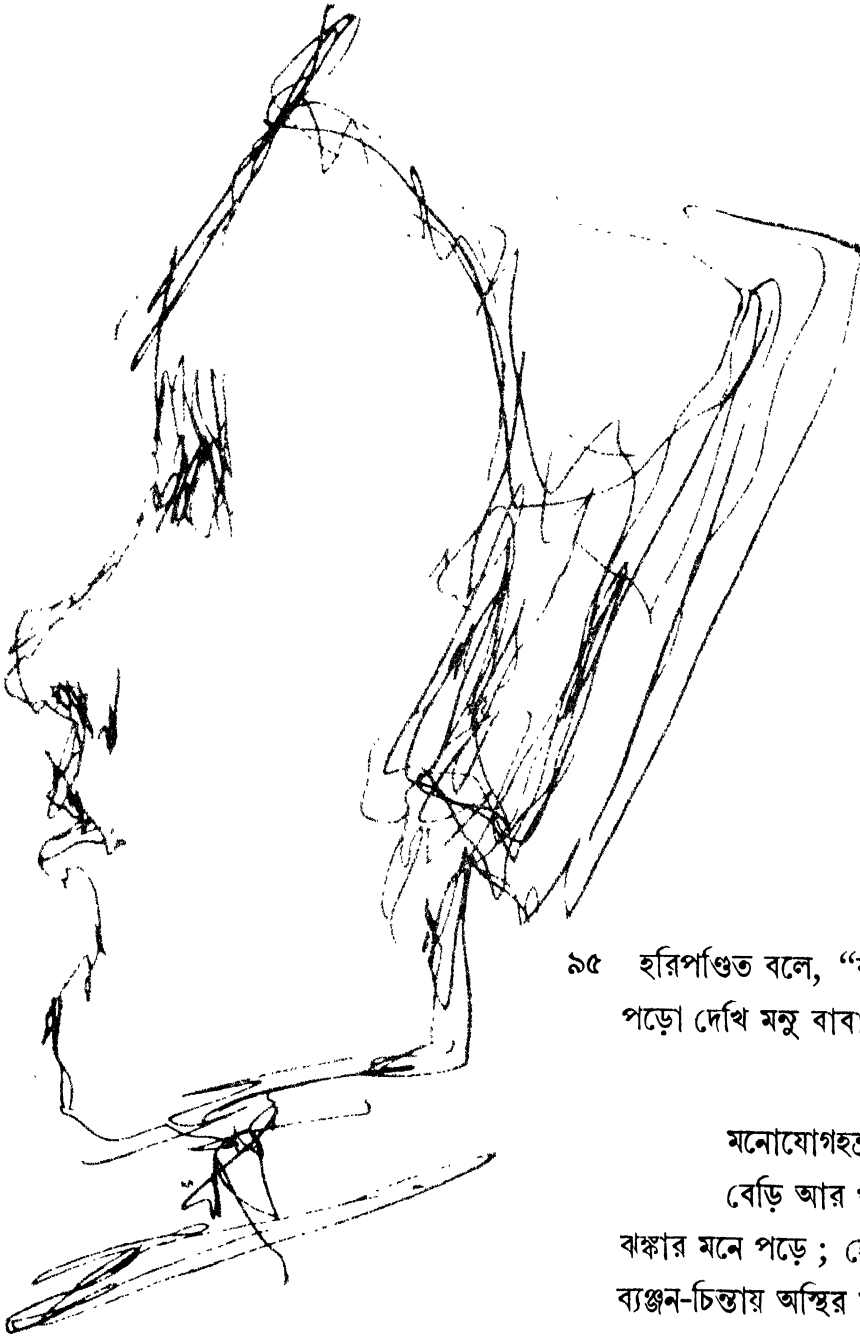 ৯৫ হরিপণ্ডিত বলে, “
পড়ো দেখি মনু বাবা
মনোযোগহন্ত্রী
বেড়ি আর
ঝঙ্কার মনে পড়ে ;
ব্যঞ্জন-চিন্তায় অস্থির